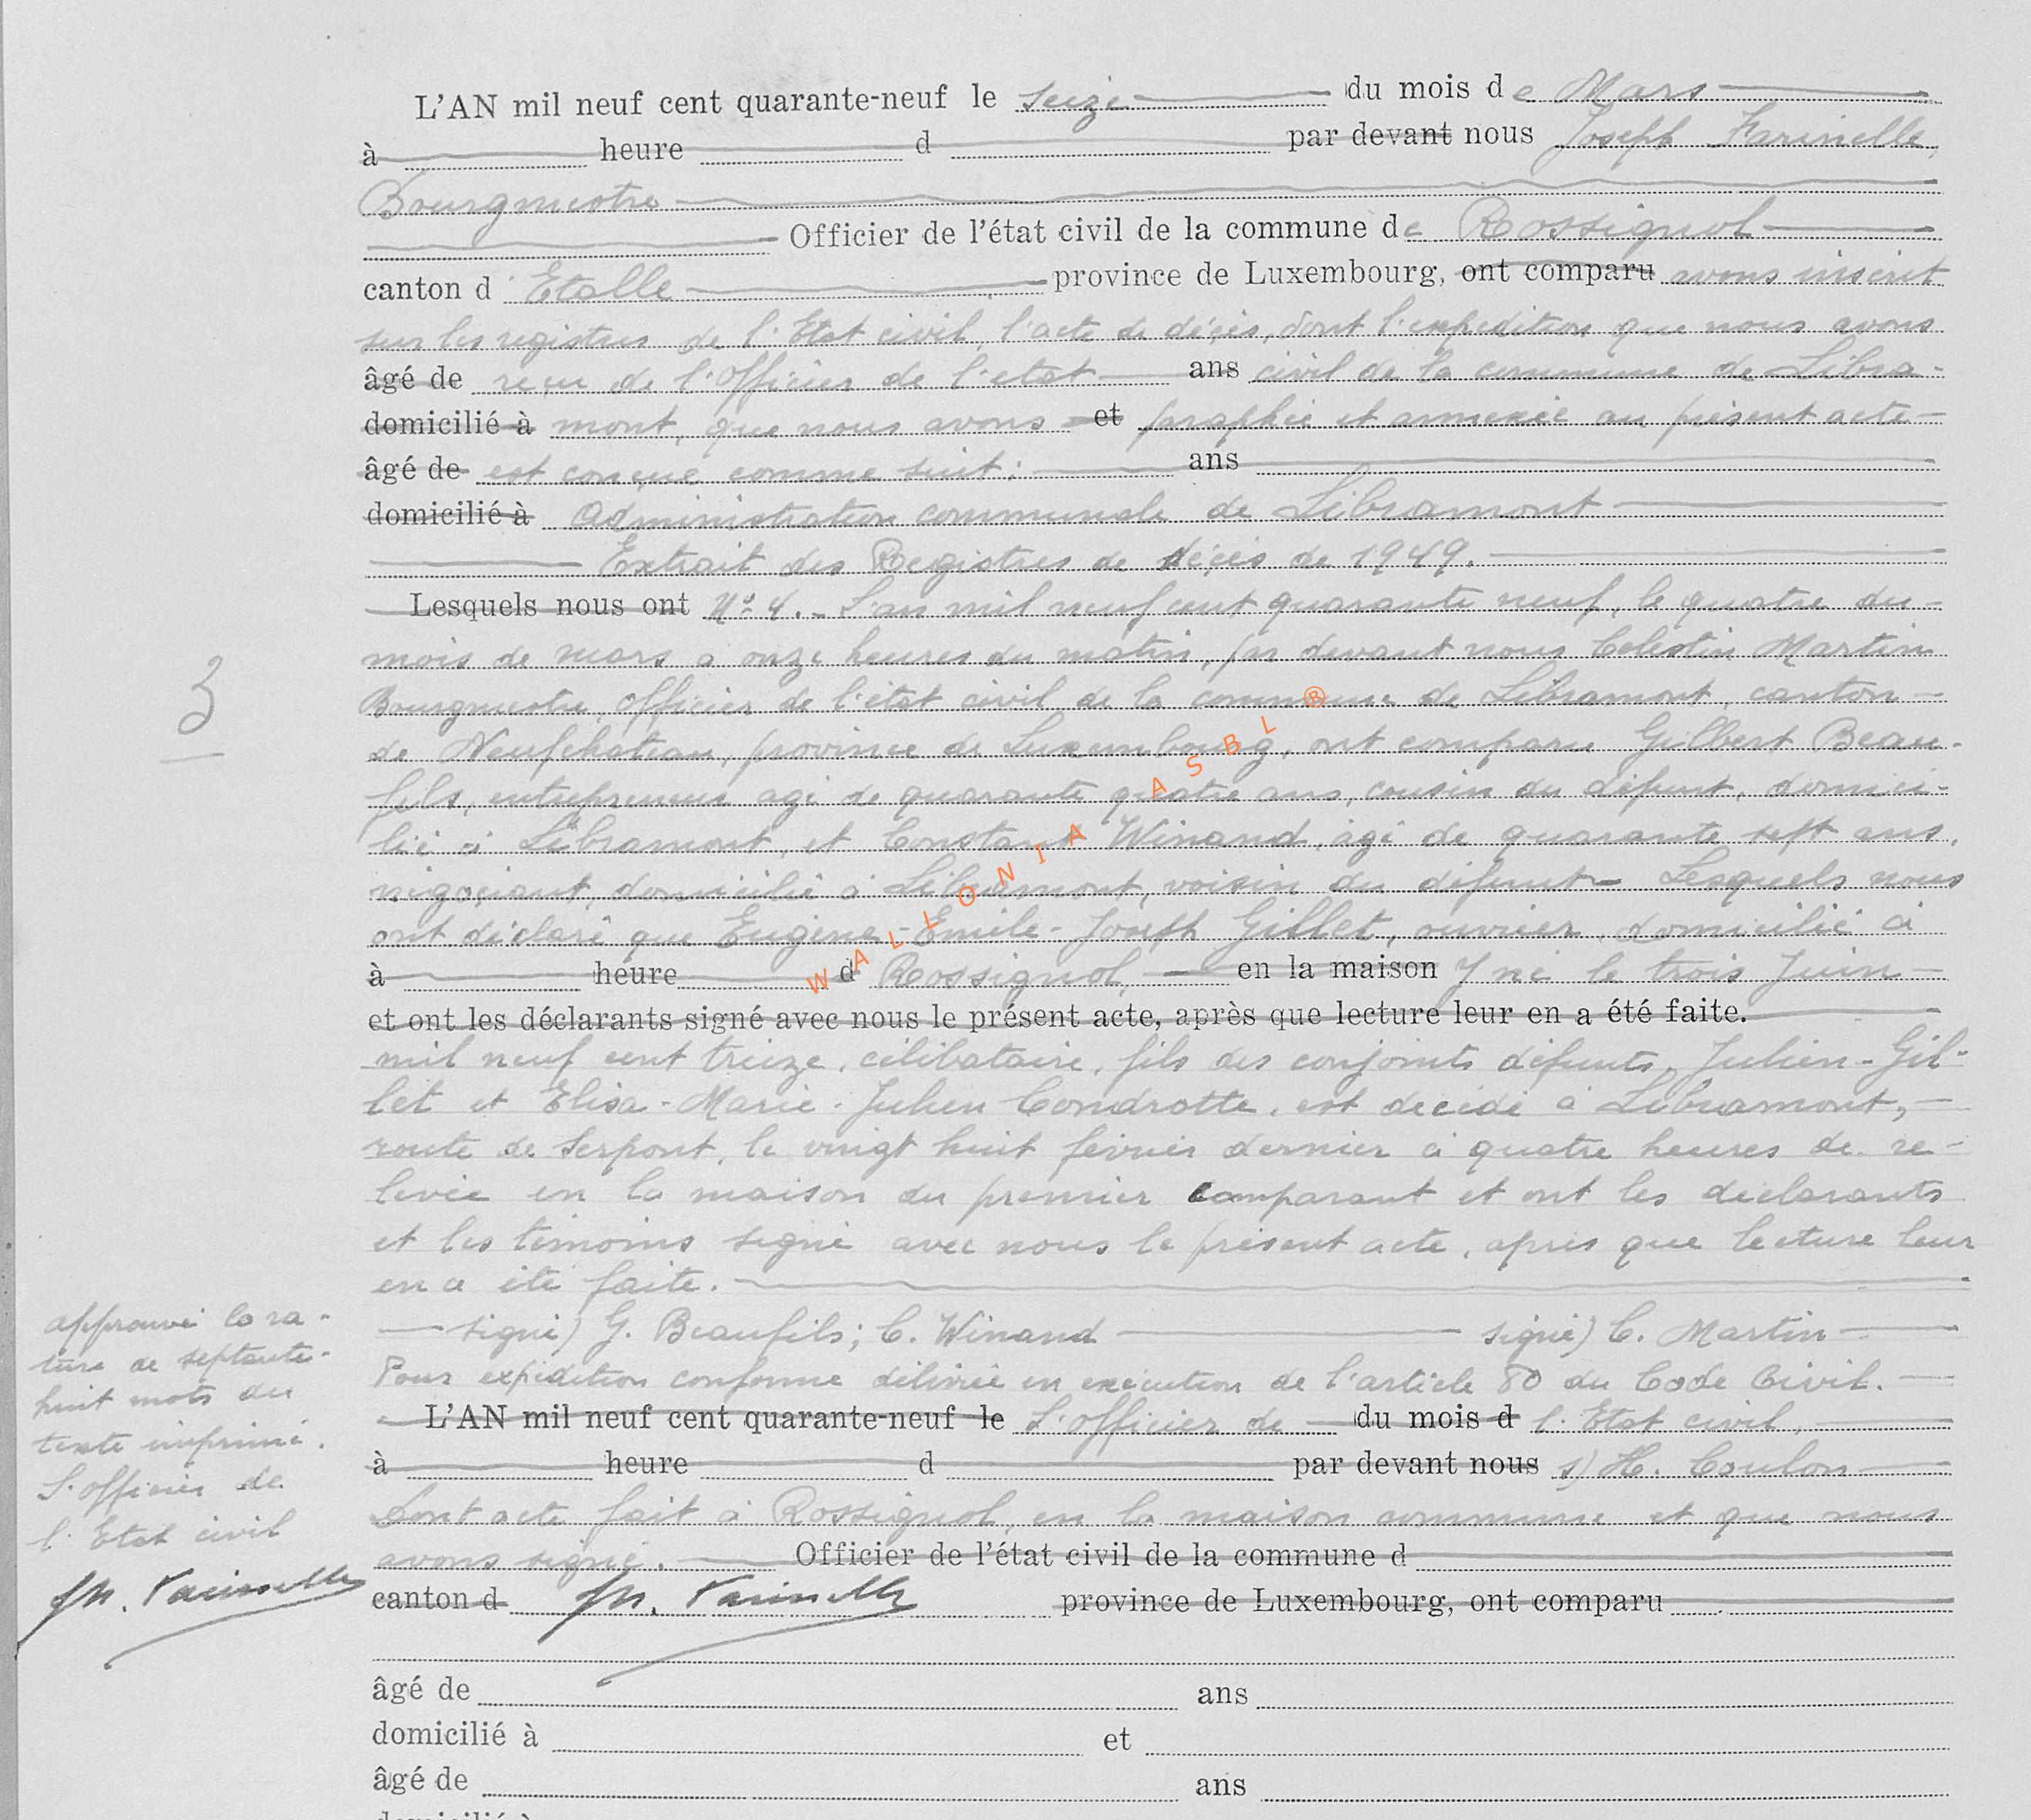 L'AN mil neuf cent quarante-neuf le seize du mois de Mars
à heure d par devant nous Joseph Farinelle,
Bourgmestre
Officier de l'état civil de la commune de Rossignol
canton d'Etalle province de Luxembourg, ont comparu avons inscrit
sur les registres de l'Etat civil, l'acte de décès, dont l'expédition que nous avons
âgé de reçue de l'Officier de l'etat ans civil de la commune de Libra-
domicilié à mont, que nous avons et paraphée et annexée au présent acte
âgé de est conçue comme suit: ans
domicilié à Administration communale de Libramont
Extrait des Registres de décès de 1949.
Lesquels nous ont N° 4. - L'an mil neuf cent quarante neuf, le quatre du
mois de mars a onze heures du matin, par devant nous Célestin Martin
Bourgmestre, Officier de l'état civil de la commune de Libramont, canton
de Neufchateau, province de Luxembourg, ont comparu Gilbert Beau-
fils, entrepreneur agé de quarante quatre ans, cousin du défunt, domici-
lié à Libramont, et Constant Winand, agé de quarante sept ans,
négociant, domicilié à Libramont, voisin du défunt - Lesquels nous
ont déclaré que Eugène-Emile-Joseph Gillet, ouvrier, domicilié à
à heure d Rossignol, en la maison y né le trois Juin
et ont les déclarants signé avec nous le présent acte, après que lecture leur en a été faite.
mil neuf cent treize, célibataire, fils des conjoints défunts, Julien-Gil-
let et Elisa-Marie-Julien Condrotte, est décédé à Libramont,
route de Serpont, le vingt huit février dernier à quatre heures de re-
levée en la maison du premier comparant et ont les déclarants
et les témoins signé avec nous le présent acte, après que lecture leur
en a été faite.
signé) G. Beaufils; C. Winand signé) C. Martin
Pour expédition conforme délivrée en exécution de l'article 80 du Code Civil.
L'AN mil neuf cent quarante-neuf le L'officier de du mois d l'Etat civil,
à heure d par devant nous s) H. Coulon
Dont acte fait à Rossignol, en la maison commune et que nous
avons signé. Officier de l'état civil de la commune d
canton d Jh. Farinelle province de Luxembourg, ont comparu
âgé de ans
domicilié à et
âgé de ans
domicilié à
3
approuvé la ra-
ture de septante-
huit mots du
texte imprimé.
L'officier de
l'Etat civil
Jh. Farinelle
WALLONIA ASBL ®